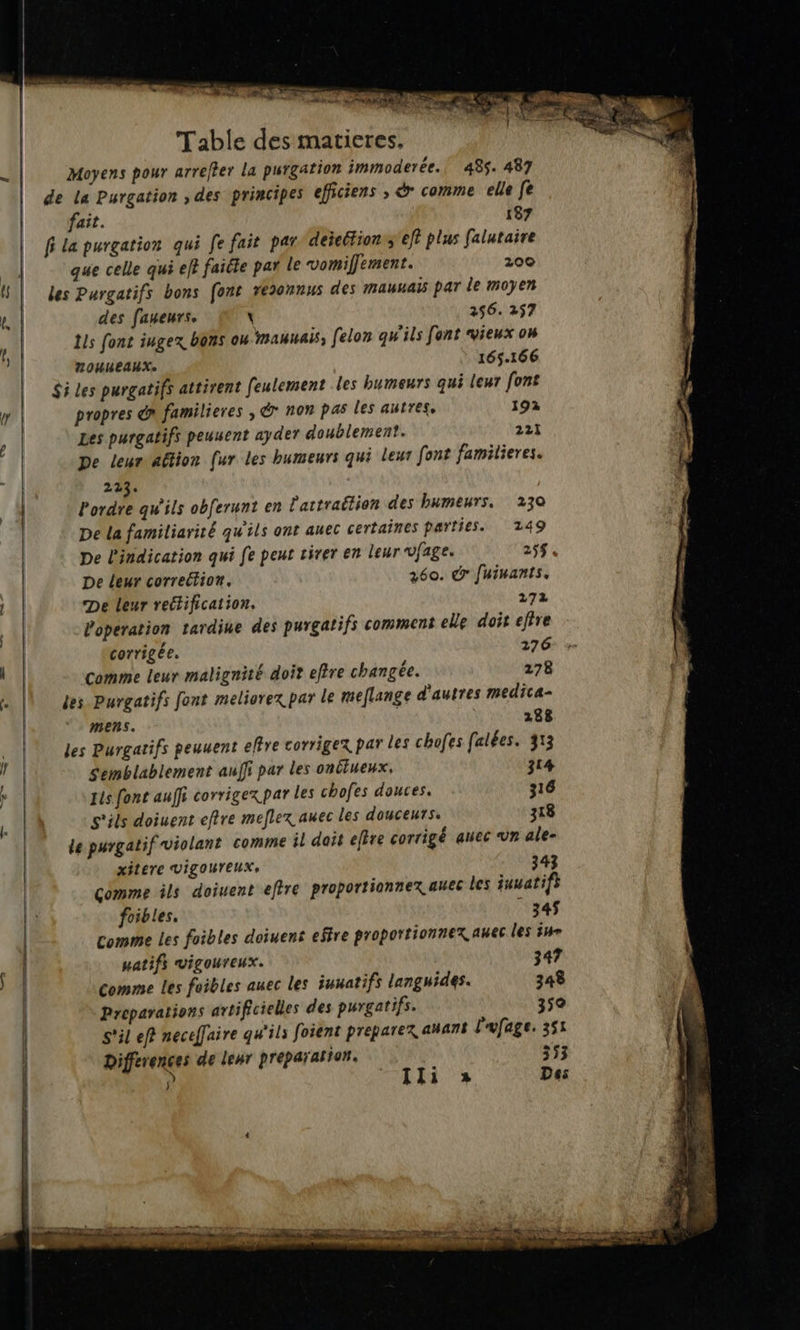 Table des matieres.
Moyens pour arreſter la purgation immoderée. 485. 487
de la Purgation , des principes efficiens , & comme elle ſe
fait. 187
ſi la purgation qui ſe fait par deiection , eſt plus ſalutaire
que celle qui eſt faicte par le vomiſſement. 200
les Purgatifs bons ſont reconnus des mauuais par le moyen
des ſaueurs. 256. 257
Ils ſont iugez bons ou mauuais, ſelon qu'ils ſont vieux ou
nouueaux. 165.166
Si les purgatifs attirent ſeulement les humeurs qui leur ſont
propres & familieres , & non pas les autres. 192
Les purgatifs peuuent ayder doublement. 221
De leur action ſur les humeurs qui leur ſont familieres.
223.
l'ordre qu'ils obſeruent en l'attraction des humeurs. 230
De la familiarité qu'ils ont auec certaines parties. 249
De l'indication qui ſe peut tirer en leur vſage. 255.
De leur correction. 260. & ſuiuants.
De leur rectification. 272
l'operation tardiue des purgatifs comment elle doit eſtre
corrigée. 276
Comme leur malignité doit eſtre changée. 278
les Purgatifs ſont meliorez par le meſlange d'autres medica-
mens. 288
les Purgatifs peuuent eſtre corrigez par les choſes ſalées. 313
Semblablement auſſi par les onctueux. 314
Ils ſont auſſi corrigez par les choſes douces. 316
S'ils doiuent eſtre meſlez auec les douceurs. 318
le purgatif violant comme il doit eſtre corrigé auec vn ale-
xitere vigoureux. 343
Comme ils doiuent eſtre proportionnez auec les iuuatifs
foibles. 345
Comme les foibles doiuent eſtre proportionnez auec les iu-
uatifs vigoureux. 347
Comme les foibles auec les iuuatifs languides. 348
Preparations artificielles des purgatifs. 350
S'il eſt neceſſaire qu'ils ſoient preparez auant l'vſage. 351
Differences de leur preparation. 353
IIi 2 Des